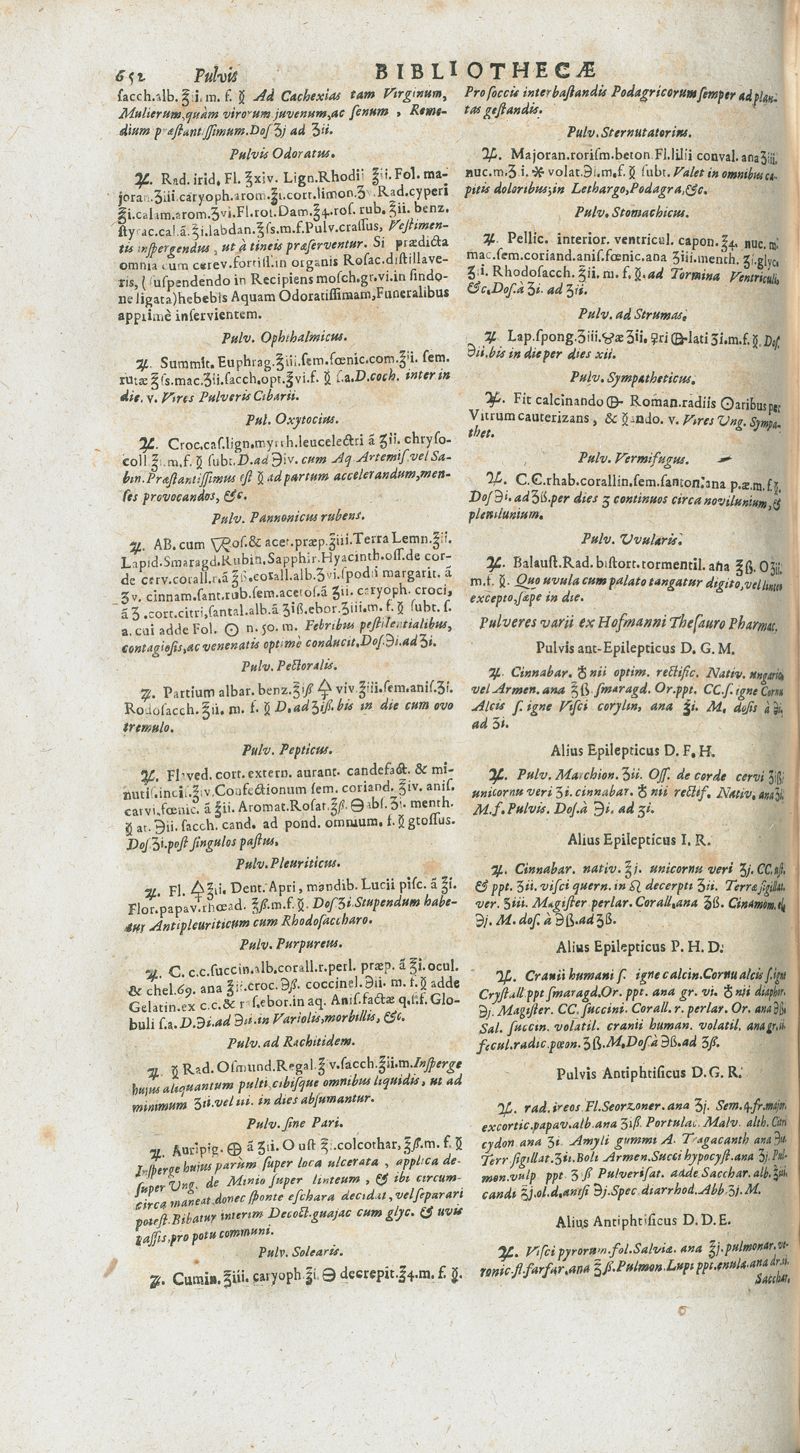 652 Pulvis BIBLIOTHECÆ
sacch.alb. ℥i. m. f. Ad Cachexias tam Virginum,
Mulierum,quàm virorum juvenum,ac senum , Reme-
dium præstantissimum. Dos ʒj ad ʒii.
Pulvis Odoratus.
♃. Rad. irid. Fl. ℥xiv. Lign.Rhodii ℥ii. Fol. ma-
joran.ʒiii caryoph.arom.ʒi.cort.limon.ʒv Rad.cyperi
℥i.calam.arom.ʒvi.Fl.rot.Dam.℥4.ros. rub. ℥ii. benz.
styrac.cal.ã.℥i.labdan.℥ſs.m.f.Pulv.craſſus, Vestimen-
tis inſpergendus , ut à tineis præſerventur. Si prædicta
omnia cum cerev.fortiſſ.in organis Roſac.diſtillave-
ris, (ſuſpendendo in Recipiens moſch.gr.vi.in ſindo-
ne ligata)hebebis Aquam Odoratiſſimam,Funeralibus
apprimè inſervientem.
Pulv. Ophthalmicus.
♃. Summit. Euphrag.℥iii.ſem.fœnic.com.℥ii. ſem.
rutæ ℥ſs.mac.ʒii.ſacch.opt.℥vi.f. ſ.a.D.coch. inter in
die. v. Vires Pulveris Cibarii.
Pul. Oxytocius.
♃. Croc.caſ.lign.myrrh.leucelectri ã ʒii. chryſo-
coll ℥i.m.f. ſubt.D.ad℈iv. cum Aq Artemiſ.vel Sa-
bin.Præſtantiſſimus eſt ad partum accelerandum,men-
ſes provocandos, &c.
Pulv. Pannonicus rubens.
♃. AB. cum roſ.& acet.præp.℥iii.Terra Lemn.℥ii.
Lapid.Smaragd.Rubin.Sapphir.Hyacinth.oſſ.de cor-
de cerv.corall.r.ã ℥ß.corall.alb.ʒvi.ſpodii margarit. ã
ʒv. cinnam.ſant.rub.ſem.acetoſ.ã ʒii. caryoph. croci,
ã ʒ.cort.citri,ſantal.alb.ã ʒiß.ebor.ʒiii.m. f. ſubt. ſ.
a. cui adde Fol. ☉ n.50. m. Febribus peſtilentialibus,
contagioſis,ac venenatis optimè conducit,Doſ.℈i.ad ʒi.
Pulv. Pectoralis.
♃. Partium albar. benz.ʒiß 🜍 viv.ʒiii.ſem.aniſ.ʒi.
Rodoſacch.℥ii. m. f. D. ad ʒiß.bis in die cum ovo
tremulo.
Pulv. Pepticus.
♃. Flaved. cort. extern. aurant. candefact. & mi-
nutiſ.inciſ.℥iv.Confectionum ſem. coriand. ℥iv. aniſ.
carvi.fœnic. ã ℥ii. Aromat.Roſar.℥ß. abſ. ʒi. menth.
ar. ℈ii. ſacch. cand. ad pond. omnium. f. groſſus.
Doſ ʒi.poſt ſingulos paſtus.
Pulv. Pleuriticus.
♃. Fl. 🜍 ℥ii. Dent. Apri, mandib. Lucii piſc. ã ℥i.
Flor.papav.rhœad. ℥ß.m.f. Doſ ʒi.Stupendum habe-
tur Antipleuriticum cum Rhodoſaccharo.
Pulv. Purpureus.
♃. C. c.c.ſuccin.alb.corall.r.perl. præp. ã ℥i. ocul.
& chel.69. ana ℥ii.croc. ℈ß. coccinel. ℈ii. m. f. adde
Gelatin.ex c.c.& raſ.ebor.in aq. Aniſ.factæ q.ſ.f. Glo-
buli ſ.a. D.℈i.ad ℈ii.in Variolis,morbillis, &c.
Pulv. ad Rachitidem.
♃. Rad. Oſmund.Regal.℥v.ſacch.℥ii.m.Inſperge
hujus aliquantum pulti,cibiſque omnibus liquidis, ut ad
minimum ʒii.vel iii. in dies abſumantur.
Pulv. ſine Pari.
♃. Auripig. ⊕ ã ʒii. O uſt ʒi.colcothar, ʒß.m. f.
Inſperge hujus parum ſuper loca ulcerata , applica de-
ſuper Ung. de Minio ſuper linteum , & ibi circum-
circa maneat,donec ſponte eſchara decidat, vel ſeparari
poteſt.Bibatur interim Decoct.guajac cum glyc. & uvis
paſſis,pro potu communi.
Pulv. Solearis.
♃. Cumin.℥iii. caryoph.℥i. decrepit.℥4.m. f.
Pro ſoccis interbaſtandis Podagricorum ſemper ad plan-
tas geſtandis.
Pulv. Sternutatorius.
♃. Majoran.roriſm.beton.Fl.lilii conval.ana ʒiii.
nuc.m.ʒi. volat.℈i.m.f. ſubt. Valet in omnibus ca-
pitis doloribus;in Lethargo,Podagra,&c.
Pulv. Stomachicus.
♃ Pellic. interior. ventricul. capon. ℥4. nuc. m.
mac.ſem.coriand.aniſ.fœnic.ana ʒiii.menth. ʒi.glyc.
ʒi. Rhodoſacch. ℥ii. m. f. ad Tormina Ventriculi,
&c. Doſ.à ʒi. ad ʒii.
Pulv. ad Strumas.
♃ Lap.ſpong.ʒiii. æ ʒii. ♀ri lati ʒi.m.f. Doſ
℈ii.bis in die per dies xii.
Pulv. Sympatheticus.
♃. Fit calcinando Roman.radiis ☉aribus per
Vitrum cauterizans , & ando. v. Vires Ung. Sympa-
thet.
Pulv. Vermifugus.
♃. C.C.rhab.corallin.ſem.ſanton.ana p.æ.m.f.
Doſ ℈i. ad ʒß.per dies 3 continuos circa novilunium,&
plenilunium.
Pulv. Uvularis.
♃. Balauſt.Rad. biſtort.tormentil. ana ℥ß. O ʒii.
m.f. Quo uvula cum palato tangatur digito,vel linteo
excepto,ſæpe in die.
Pulveres varii ex Hofmanni Theſauro Pharmac.
Pulvis ant-Epilepticus D. G. M.
♃. Cinnabar. ♁ nii optim. rectific. Nativ. ungaric.
vel Armen. ana ʒß ſmaragd. Or.ppt. CC.ſ.igne Cornu
Alcis ſ. igne Viſci corylin, ana ʒi. M. doſis à ℈i.
ad ʒi.
Alius Epilepticus D. F. H.
♃. Pulv. Marchion. ʒii. Oſſ. de corde cervi ʒiß.
unicornu veri ʒi. cinnabar. ♁ nii rectif. Nativ. ana ʒi.
M.f. Pulvis. Doſ.à ℈i. ad ʒi.
Alius Epilepticus I. R.
♃. Cinnabar. nativ. ʒj. unicornu veri ʒj. CC.uſt.
& ppt. ʒii. viſci quern. in ♌ decerpti ʒii. Terræ ſigillat.
ver. ʒiii. Magiſter perlar. Corall.ana ʒß. Cinamom.
℈j. M. doſ. à ℈ß.ad ʒß.
Alius Epilepticus P. H. D.
♃. Cranii humani ſ. igne calcin.Cornu alcis ſ.igne
Cryſtall.ppt ſmaragd.Or. ppt. ana gr. vi. ♁ nii diaphor.
℈j. Magiſter. CC. ſuccini. Corall. r. perlar. Or. ana ℈ß
Sal. ſuccin. volatil. cranii human. volatil. ana gr.ii.
fecul.radic.pœon. ʒß.M.Doſ.à ℈ß.ad ʒß.
Pulvis Antiphtiſicus D. G. R.
♃. rad. ireos Fl.Scorzoner. ana ʒj. Sem.4.fr.major.
excortic.papav.alb.ana ʒiß. Portulac. Malv. alth. Citri
cydon ana ʒi. Amyli gummi A. Tragacanth ana ℈ii.
Terr ſigillat.ʒii.Boli Armen.Succi hypocyſt.ana ʒj. Pul-
mon.vulp ppt. ʒß Pulveriſat. adde Sacchar. alb. ℥iii.
candi ℥j.ol.d.aniſi ℈j.Spec diarrhod.Abb.ʒj.M.
Alius Antiphtiſicus D. D. E.
♃. Viſci pyrorum.fol.Salviæ. ana ℥j.pulmonar.ve-
ronic.fl.farfar.ana ℥ß.Pulmon.Lupi ppt.enula.ana dr.ii.
Sacchar,